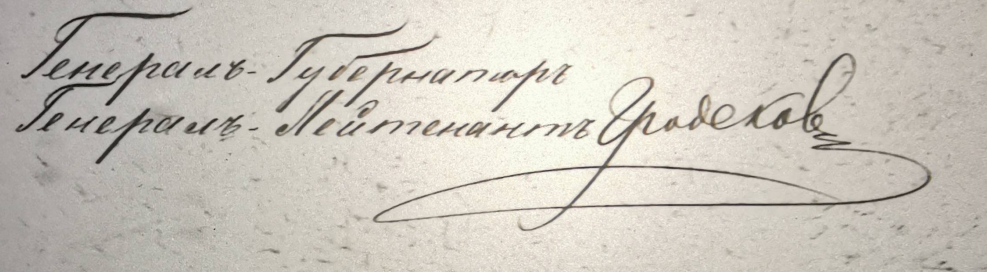 Генералъ-Губернаторъ
Генералъ-Лейтенантъ Гродековъ